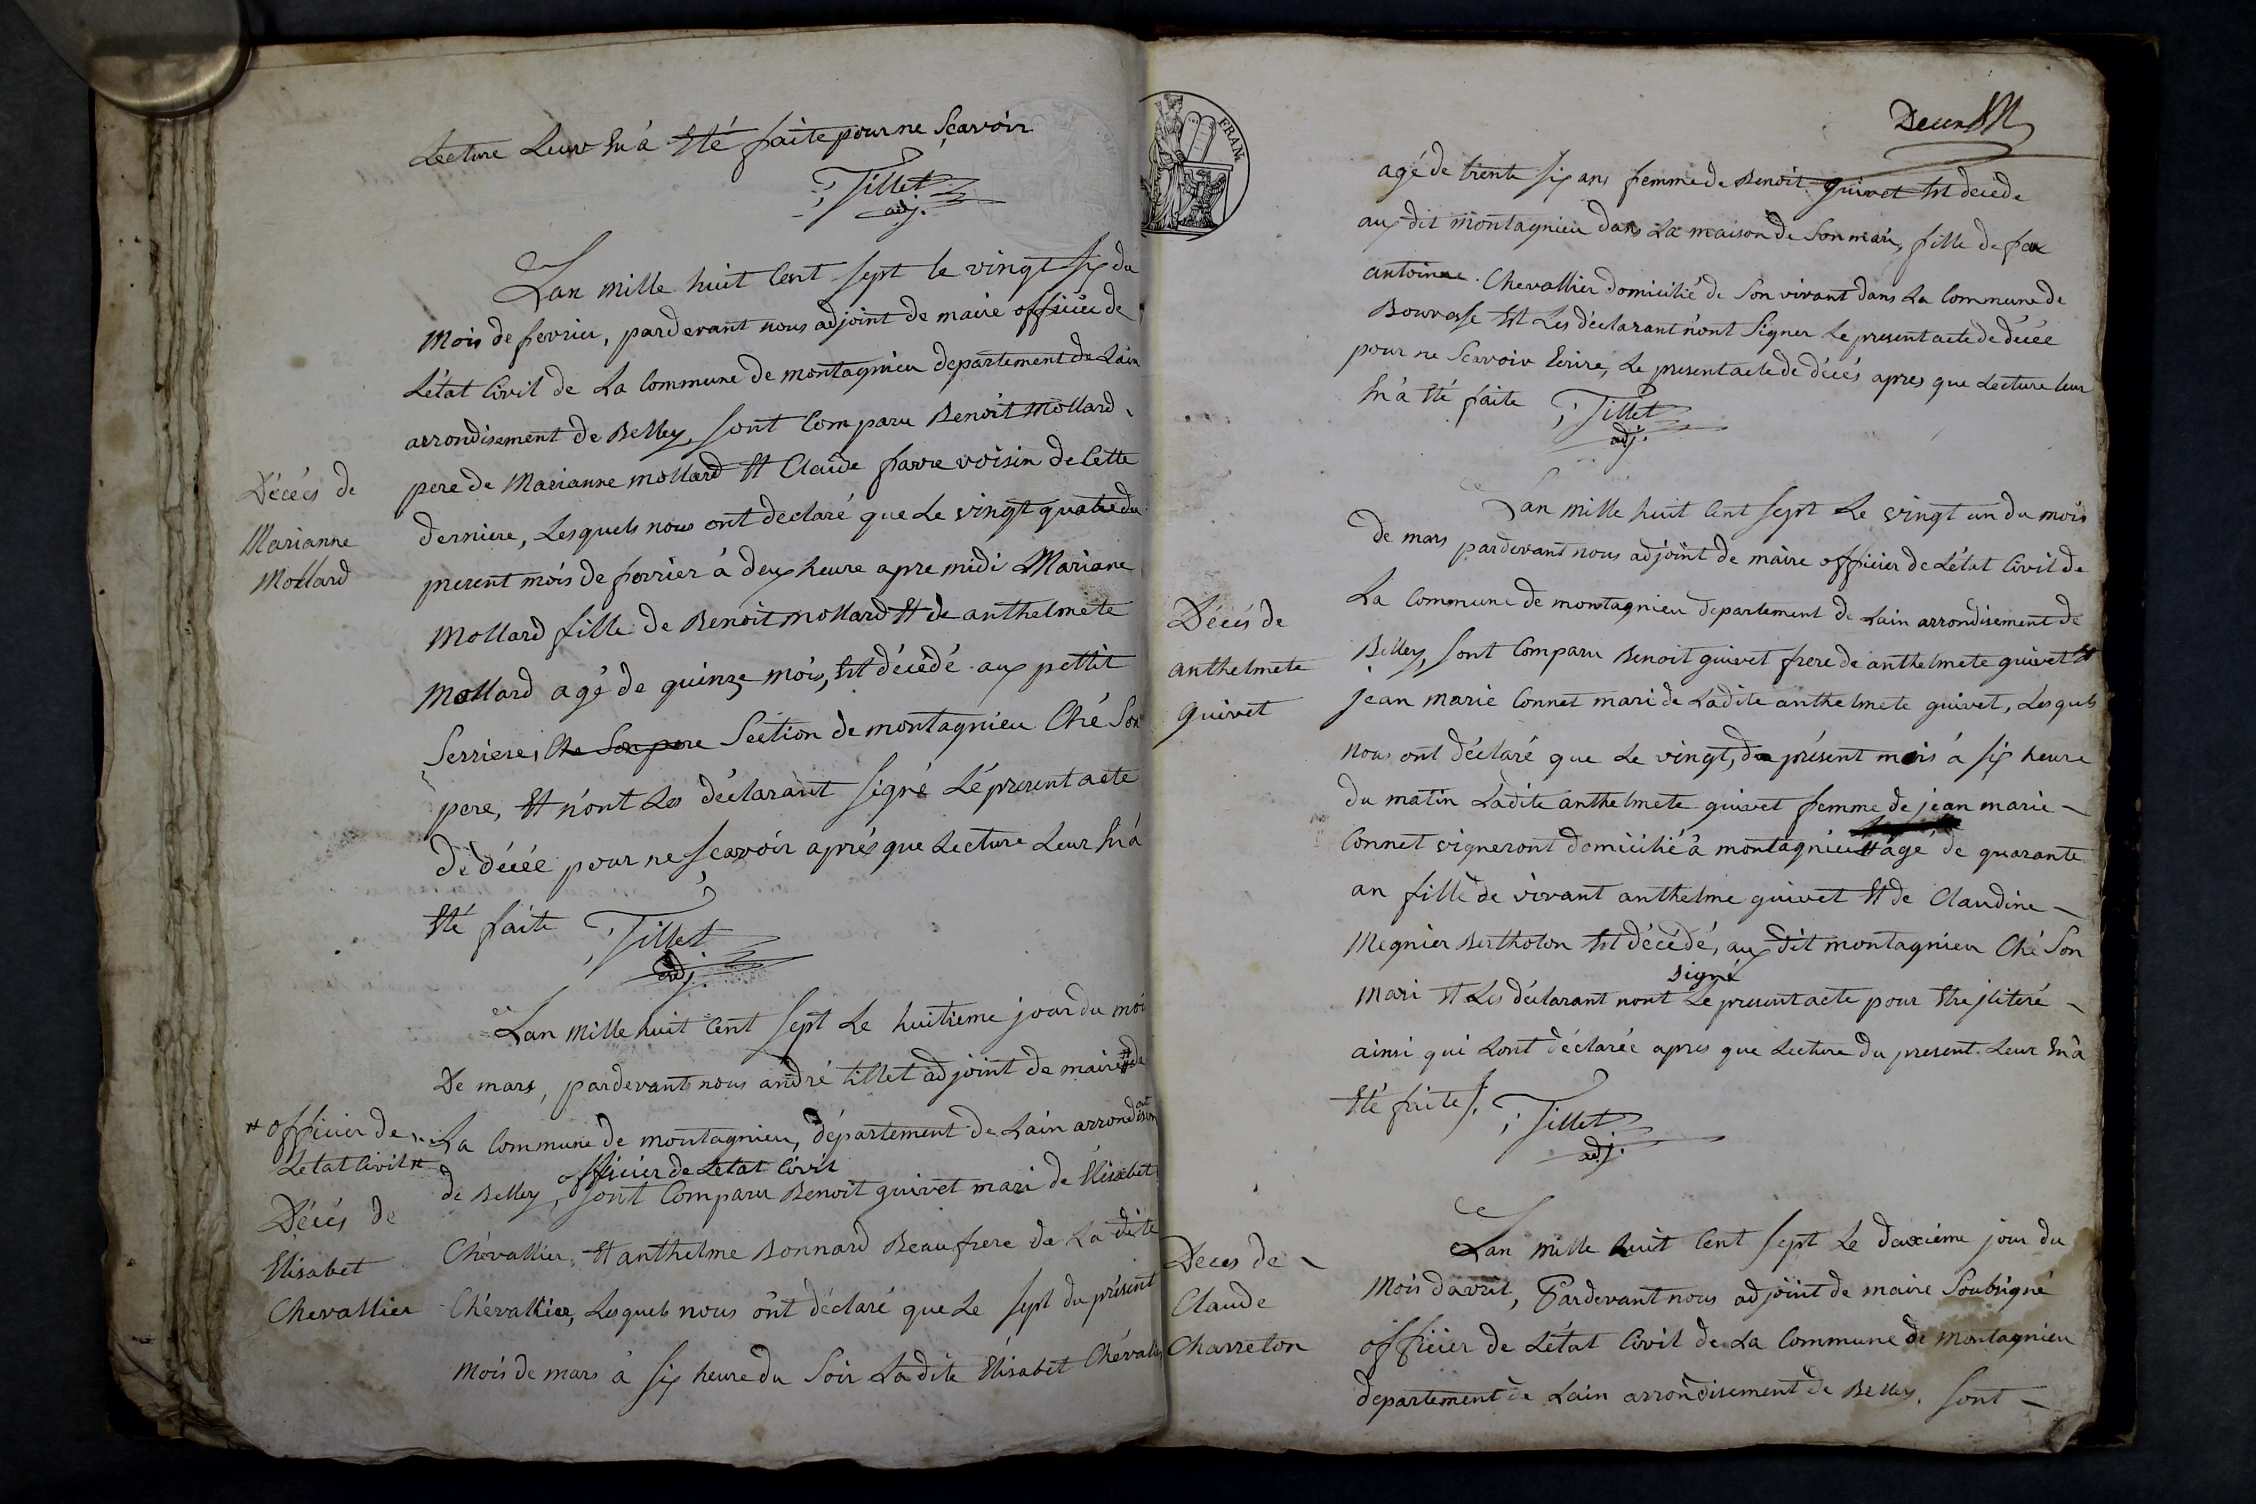 Lecture Leur En á Eté faite pour ne Sçavoir
Tillet
adj.
Lan mille huit Cent sept le vingt six du
Mois de fevrier, pardevant nous adjoint de maire officier de
Létat Civil de La Commune de montagnieu departement de Lain
arrondisement de Belley, sont Comparu Benoit Mollard
pere de Marianne mollard Et Claude favre voisin de Cette
derniere, Lesquels nous ont declaré que Le vingt quatre du
present mois de fevrier á deux heure apre midi Mariane
Mollard fille de Benoit mollard Et de anthelmete
Mollard agé de quinze mois, Est décédé aux pettit
Serriere, Che Son pere Section de montagnieu Ché Son
pere, Et n'ont Les déclarant signé Le present acte
de décée pour ne sçavoir aprés que Lecture Leur En á
Eté faite
Tillet
adj.
Décés de
Marianne
Mollard
Lan Mille huit Cent sept Le huitieme jour du moi
De mars, pardevant nous andré tillet adjoint de maire # de
La Commune de montagnieu, département de Lain arrondisement
officier de Letat Civil
de Belley, sont Comparu Benoit guivet mari de Elisabet
Chevallier, Et anthelme Bonnard Beaufrere de La dite
Chévallier, Lesquels nous ônt déclaré que Le sept du présent
Mois de mars á six heure du Soir Ladite Elisabet Chévall
# officier de
Letat Civil #
Décés de
Elisabet
Chevallier
FRAN.
agé de trente six ans femme de Benoit guivet Est decede
aux dit montagnieu dans La maison de Son mari, fille de feu
antoine Chevallier domicilié de Son vivant dans La Commune de
Bouvesse Et Les déclarant n'ont Signer Le present acte de décée
pour ne Scavoir Ecrire, Le present acte de décés apres que Lecture leur
En á Eté faite
Tillet
adj.
Lan mille huit Cent sept Le vingt un du mois
de mars pardevant nous adjoint de maire officier de Létat Civil de
La Commune de montagnieu departement de Lain arrondisement de
Belley, sont Comparu Benoit guivet frere de anthelmete guivet Et
jean marie Connet mari de Ladite anthelmete guivet, Lesquels
nous ont déclaré que Le vingt, du présent mois á six heure
du matin Ladite anthelmete guivet femme de jean marie
Connet vigneront domicilié á montagnieu Et agé de quarante
an fille de vivant anthelme guivet Et de Claudine
Megnier Bertholon Est décédé, aux dit montagnieu Ché Son
signé
Mari Et Les déclarant nont Le present acte pour Etre jliteré
ainsi qui Lont déclarée apres que Lecture du present Leur En á
Eté faite
Tillet
adj.
Décés de
anthelmete
Guivet
Lan mille huit Cent sept Le deuxieme jour du
Mois davril, Pardevant nous adjoint de maire Soubsigné
officier de Létat Civil de La Commune de Montagnieu
departement de Lain arrondisement de Belley. sont
Deces de
Claude
Charreton